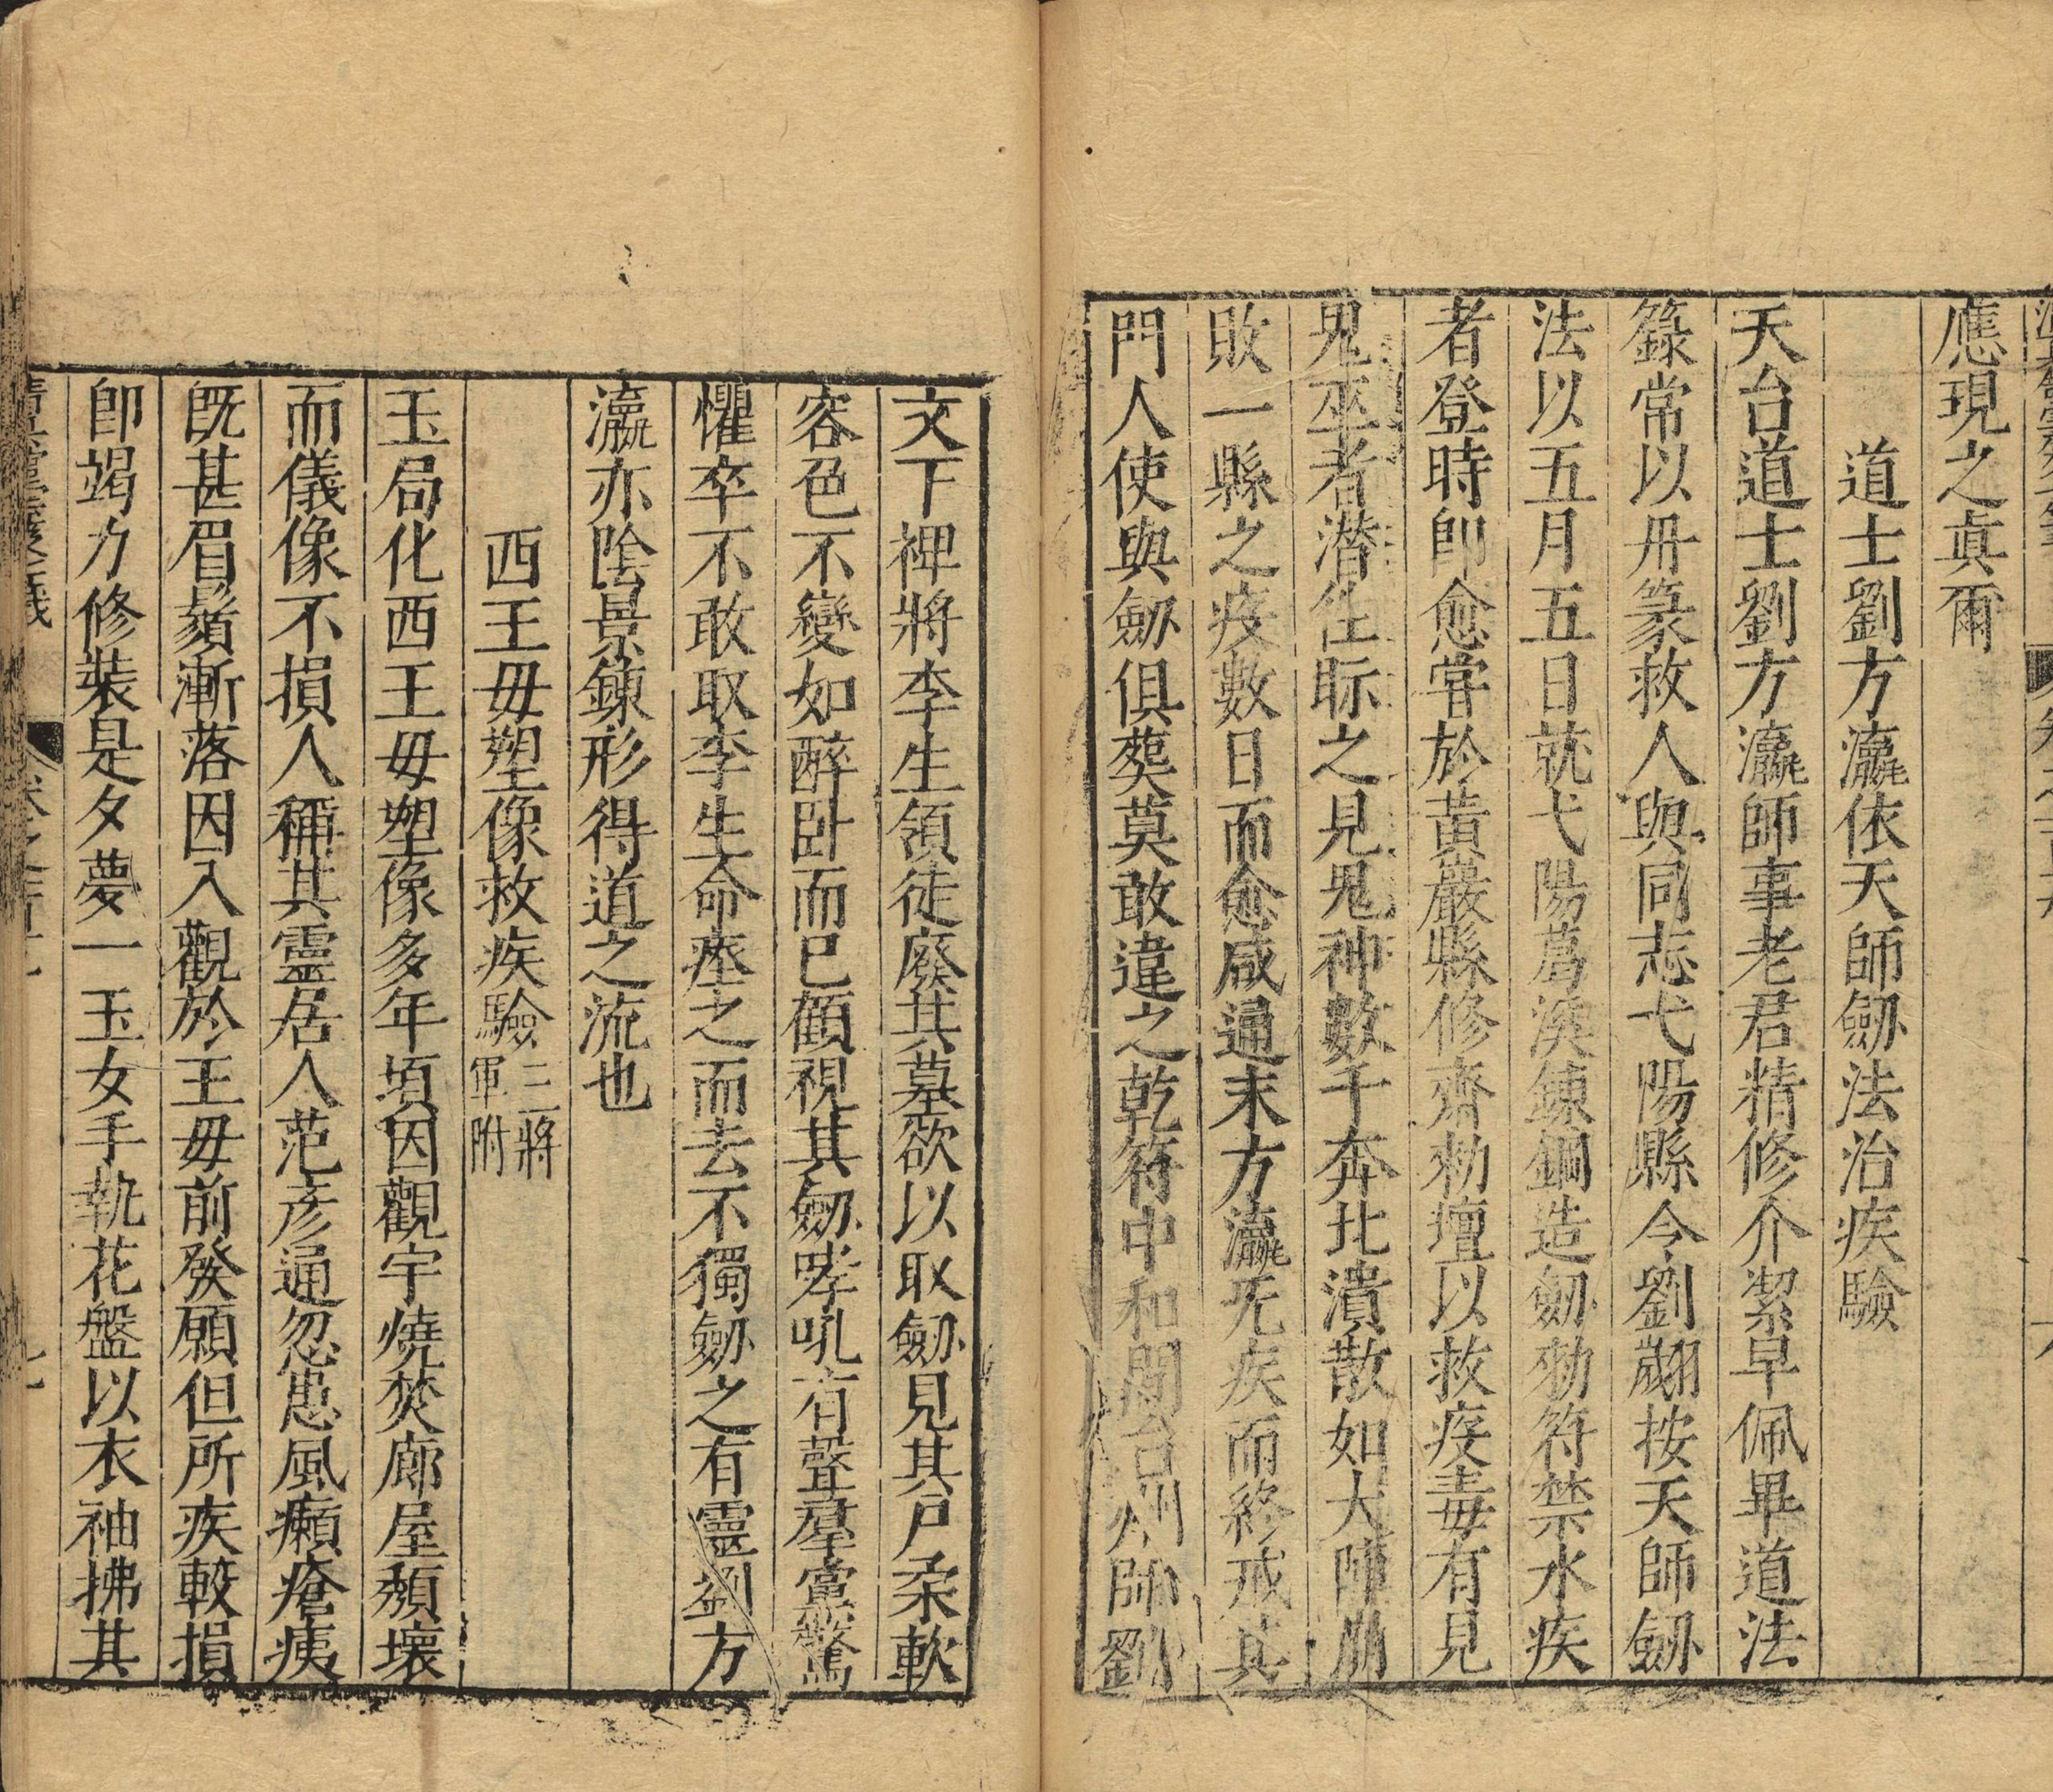 應現之眞爾
道士劉方瀛依天師劒法治疾驗
天台道士劉方瀛師事老君精修介潔早佩畢道法
籙常以丹篆救人與同志弋陽縣令劉翽按天師劒
法以五月五日就弋陽葛溪鍊鋼造劒勑符禁水疾
者登時卽愈嘗於黃巖縣修齋勑壇以救疫毒有見
鬼巫者潛往眎之見鬼神數千奔北潰散如大陣崩
敗一縣之疫數日而愈咸通末方瀛无疾而終戒其
門人使與劒俱葬莫敢違之乾符中和間台州帥劉
文下裨將李生領徒廢其墓欲以取劒見其尸柔軟
容色不變如醉臥而已顧視其劒哮吼有聲羣黨驚
懼卒不敢取李生命瘞之而去不獨劒之有靈劉方
瀛亦陰景鍊形得道之流也
西王母塑像救疾驗三將軍附
玉局化西王母塑像多年頃因觀宇燒焚廊屋頽壞
而儀像不損人稱其靈居人范彥通忽患風癩瘡痍
旣甚眉鬚漸落因入觀於王母前發願但所疾較損
卽竭力修裝是夕夢一玉女手執花盤以衣袖拂其